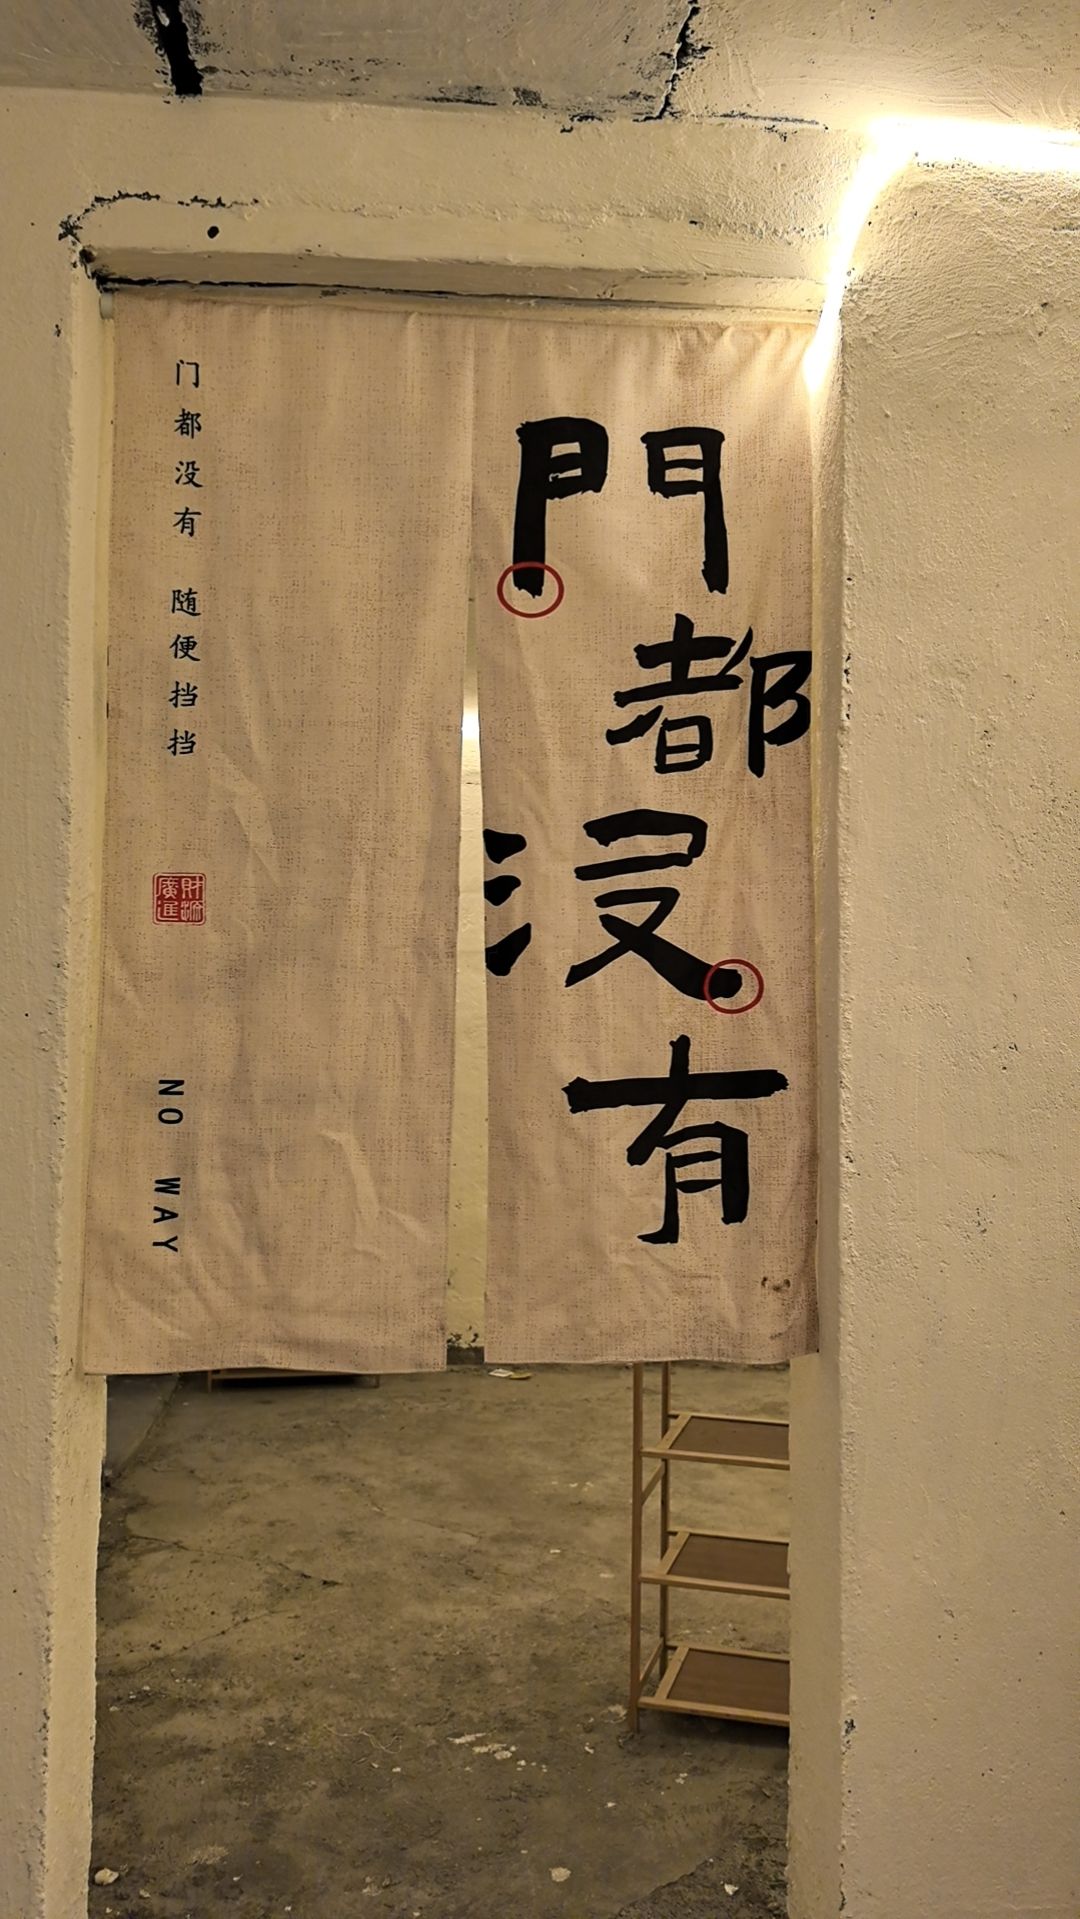 門都没有
门都没有 随便挡挡
財源廣進
NO WAY